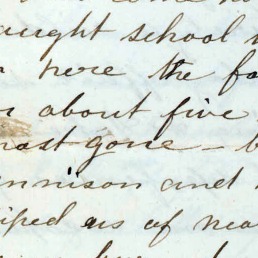 aught school
here the fa
about five
most gone - b
nnison and
iped us of nea